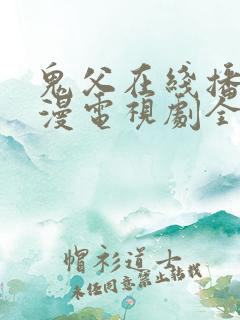 鬼父在线播
漫電視劇全
帽衫道士
未经同意禁止转载